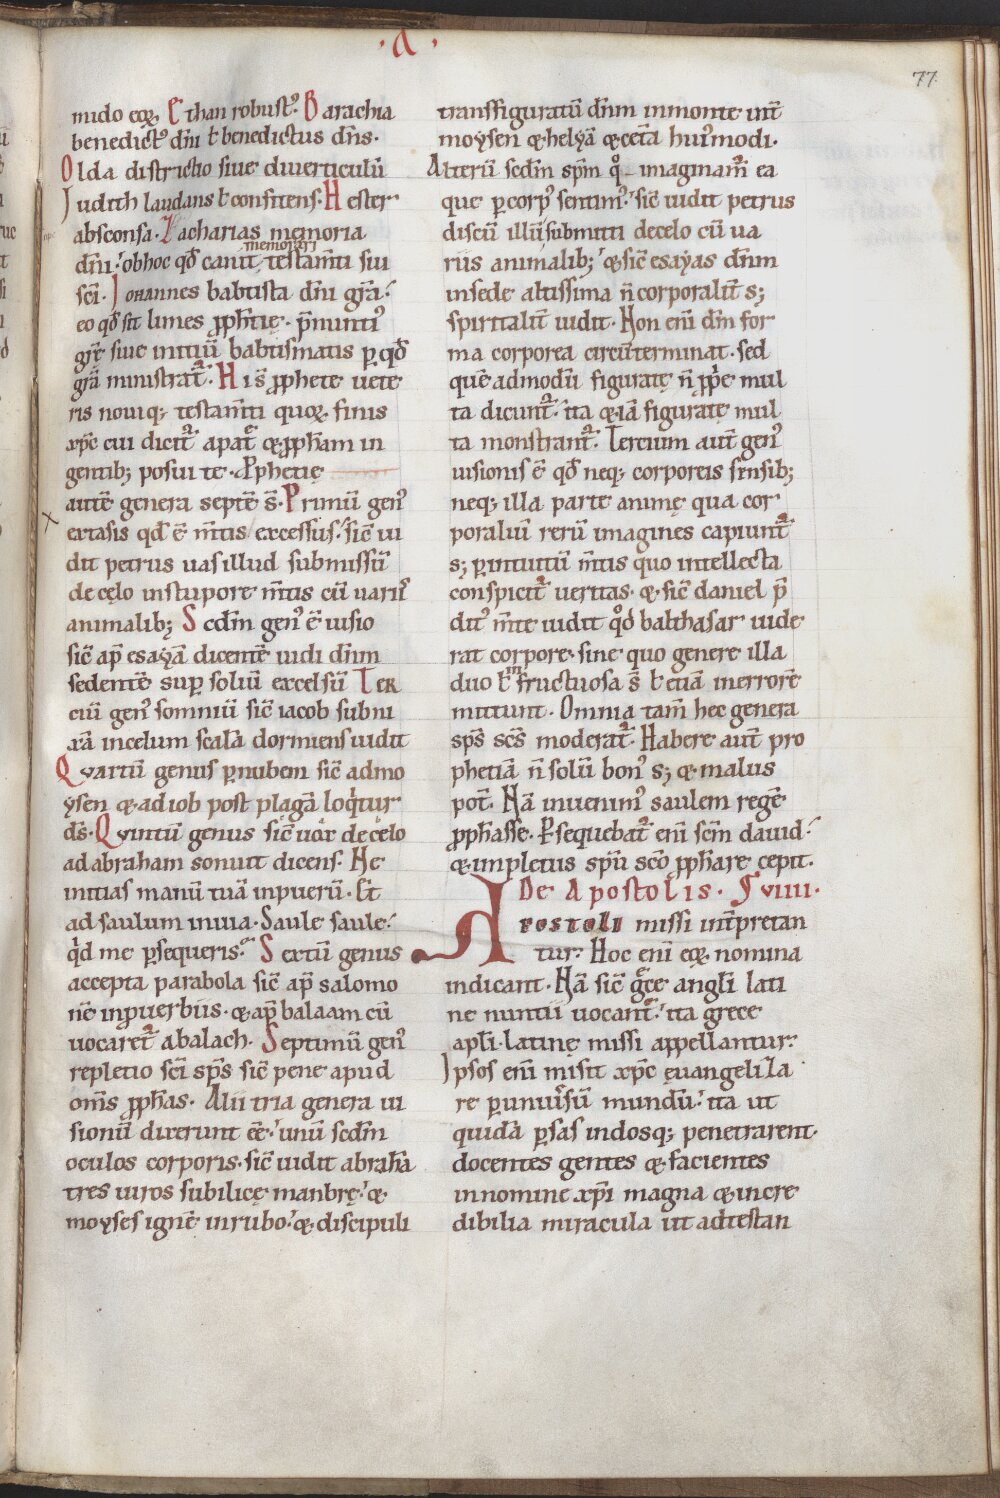 ·A·
77
mido eoꝝ. Ethan robust᷒. Barachia
benedict᷒ dñi ł benedictus dñs·
Olda districtio siue diuerticulū
Iudith laudans ł confitens· Hester
absconsa· Zacharias memoria
memorari
dñi· obhoc qđ canit testam̄ti sui
sc̄i· Iohannes babtista dñi gr̄a·
eo qđ sit limes ꝓphetię· p̄nunti᷒
gr̄ę siue initiū babtismatis ꝑ qđ
gr̄a ministrat᷑· Hi s̄ ꝓphete uete
ris nouiq; testam̄ti quoꝝ· finis
xp̄c cui dicit᷑ a patre & ꝓph̄am in
gentib; posui te· Pphetię
autē genera septē s̄· Primū gen᷒
extasis qđ ē m̄tis excessus· sic̄ ui
dit petrus uas illud submissū
de cęlo in stupore m̄tis cū uariis
animalib; Scđm gen᷒ ē uisio
sic̄ ap̄ esayā dicentē uidi dn̄m
sedentē suꝑ soliū excelsū Ter
ciū gen᷒ somniū sic̄ iacob subni
xā in celum scalā dormiens uidit
Quartū genus ꝑ nubem sic̄ ad mo
ysen & ad iob post plagā loqͥtur
ds̄· Quintū genus sic̄ uox de cęlo
ad abraham sonuit dicens· Ne
inicias manū tuā in puerū· Et
ad saulum in uia· Saule saule·
qͥd me ꝑsequeris· Sextū genus
accepta parabola sic̄ ap̄ salomo
nē in ꝓuerbiis· & ap̄ balaam cū
uocaret᷑ abalach· Septimū gen᷒
repletio sc̄i sp̄s sic̄ pene apud
om̄s ꝓph̄as· Alii tria genera ui
sionū dixerunt eē· unū scđm
oculos corporis· sic̄ uidit abrahā
tres uiros sub ilicę manbrę· &
moyses ignē in rubo· & discipuli
transfiguratū dn̄m in monte int̄
moysen & helyā & cet̄a hui᷒modi·
Alterū scđm sp̄m qͦ imaginam᷑ ea
que ꝑ corp᷒ sentim᷒· sic̄ uidit petrus
discū illū submitti de celo cū ua
riis animalib; & sic̄ esayas dn̄m
in sede altissima n̄ corporalit̄ s;
spiritalit̄ uidit· Non eni dm̄ for
ma corporea circūterminat· sed
quē admodū figuratę n̄ ꝓpͥe mul
ta dicunt᷑· ita & iā figuratę mul
ta monstrant᷑· Tercium aut̄ gen᷒
uisionis ē qđ neq; corporeis sensib;
neq; illa parte animę qua cor
poraliū rerū imagines capiunt᷑
s; ꝑ intuitū m̄tis quo intellecta
conspicit᷑ ueritas· & sic̄ daniel p̄
dit᷒ m̄te uidit qͦd balthasar uide
rat corpore· sine quo genere illa
duo ł infructuosa s̄ ł etiā in errorē
mittunt· Omnia tam̄ hec genera
sp̄s sc̄s moderat᷑· Habere aut̄ pro
phetiā n̄ solū bon᷒ s; & malus
pot̄· Nā inuenim᷒ saulem regē
ꝓphasse· Psequebat᷑ eni sc̄m dauid·
& impletus sp̄u sc̄o ꝓph̄are cepit·
De Apostolis· VIIII·
Apostoli missi int̄pretan
tur· Hoc eni eoꝝ nomina
indicant· Nā sic̄ gͣce angłi lati
ne nuntii uocant᷑· ita grece
apłi· latinę missi appellantur·
Ipsos eni misit xp̄c ęuangeliza
re ꝑ uniuersū mundū· ita ut
quidā ꝑsas indosq; penetrarent·
docentes gentes & facientes
in nomine xp̄i magna & incre
dibilia miracula ut adtestan